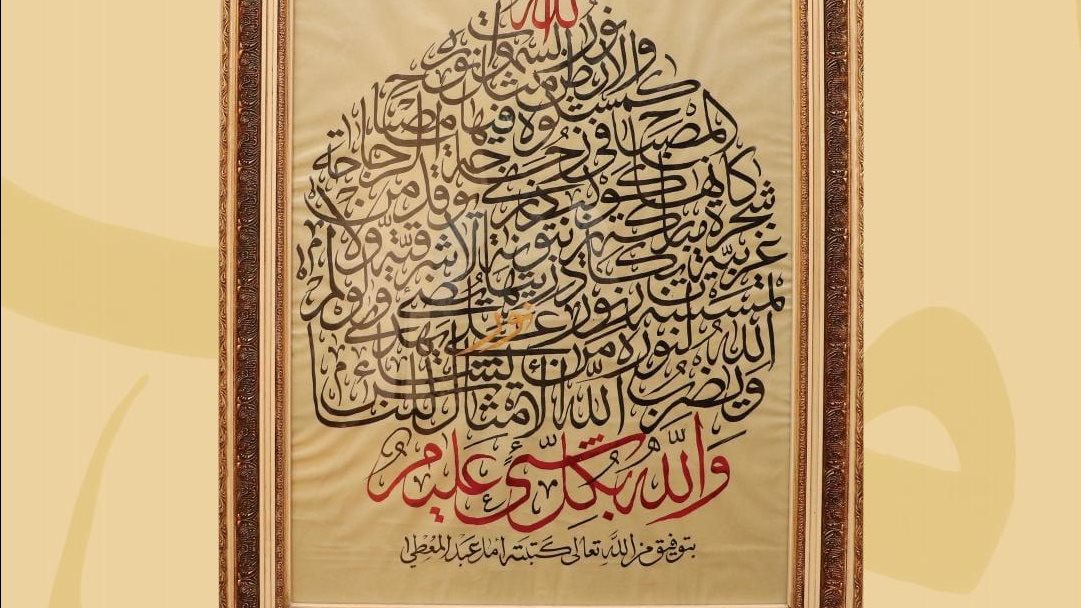 الله
نور السموات
والارض مثل نوره
كمشكوة فيها مصباح
المصباح في زجاجة الزجاجة
كانها كوكب دري يوقد من
شجرة مباركة زيتونة لا شرقية ولا
غربية يكاد زيتها يضيء ولو لم
تمسسه نار نور على نور يهدي
الله لنوره من يشاء
ويضرب الله الأمثال للناس
والله بكل شيء عليم
بتوفيق من الله تعالى كتبته عبد المعطي